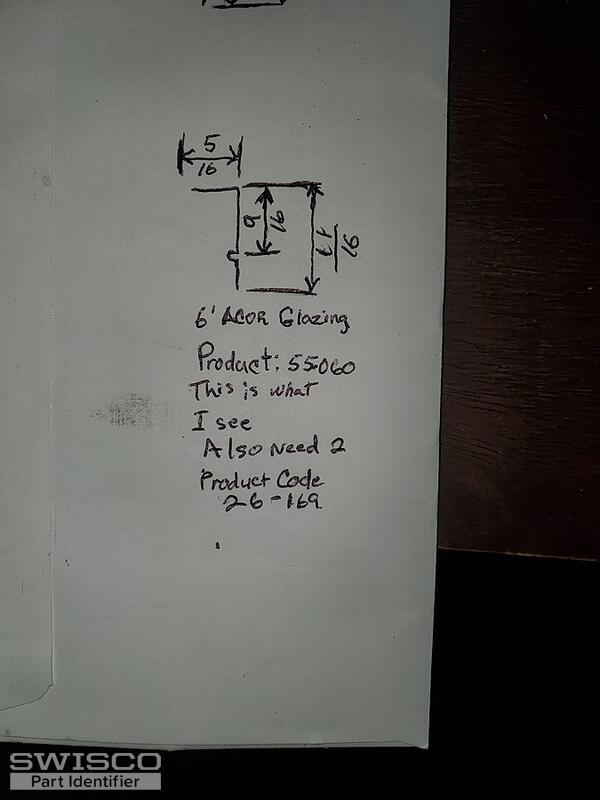 5
16
9
16
11
16
6' ACOR Glazing
Product: 55060
This is what
I see
Also Need 2
Product Code
26-169
SWISCO
Part Identifier